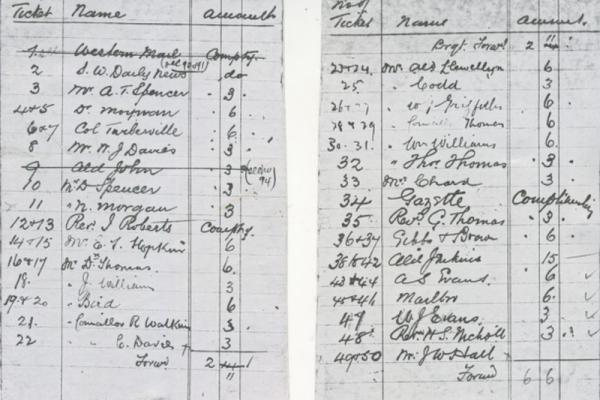 Ticket Name Amount
1 Western Mail Compty.
2 S. W. Daily News do
3 Mr A. T. Spencer 3
4+5 Dr Morgan 6
6+7 Col Turberville 6
8 Mr W. J Davies 3
9 Ald John 3
94)
10 Mr D Spencer 3
11 " N. Morgan 3
12+13 Rev. I Roberts Compty.
14+15 Mr E. T. Hopkins 6
16+17 Mr Ds Thomas 6
18 " J. Williams 3
19+20 " Bird 6
21 " Councillor R Watkins 3
22 " E. Davies 3
Forwd 2
11
Ticket Name Amount
Brgt. Forwd 2
23+24 Mr Ald Llewellyn 6
25 " Codd 3
26+27 " W J Griffiths 6
28+29 Thomas 6
30.31. " Wm Williams 6
32 " Thos Thomas 3
33 Mr Chard 3
34 Gazette
35 Rev. G. Thomas 3
36+37 Gibbs + Brown 6
38 to 42 Ald Jenkins 15
43+44 A S Evans 6
45+46 Marlbro 6
47 W J Evans 3
48 Rev. W S Nicholl 3
49+50 Mr J W Hall
Forwd 6 6